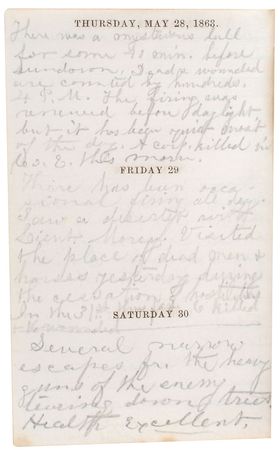 THURSDAY, MAY 28, 1863.
There was a mysterious lull
for some 90 min. before
sundown. Dead & wounded
are counted by hundreds.
4 P.M. The firing was
renewed before daylight
but it has been quiet most
of the day. A corp. killed in
Co. E. this morn.
FRIDAY 29
There has been occa-
sional firing all day.
Saw a deserter with
Lieut. Morey. Visited
the place of dead men &
horses yesterday during
the cessation of hostilities
In the 31st killed
& wounded
SATURDAY 30
Several narrow
escapes fr. the heavy
guns of the enemy
tearing down trees.
Health Excellent.